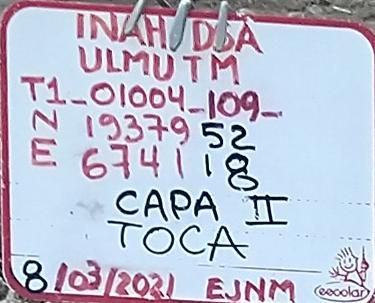 INAH/DSA
ULMUTM
T1-01004-109-
N 1937952
E 674118
CAPA II
TOCA
8/03/2021 EJNM
escolar